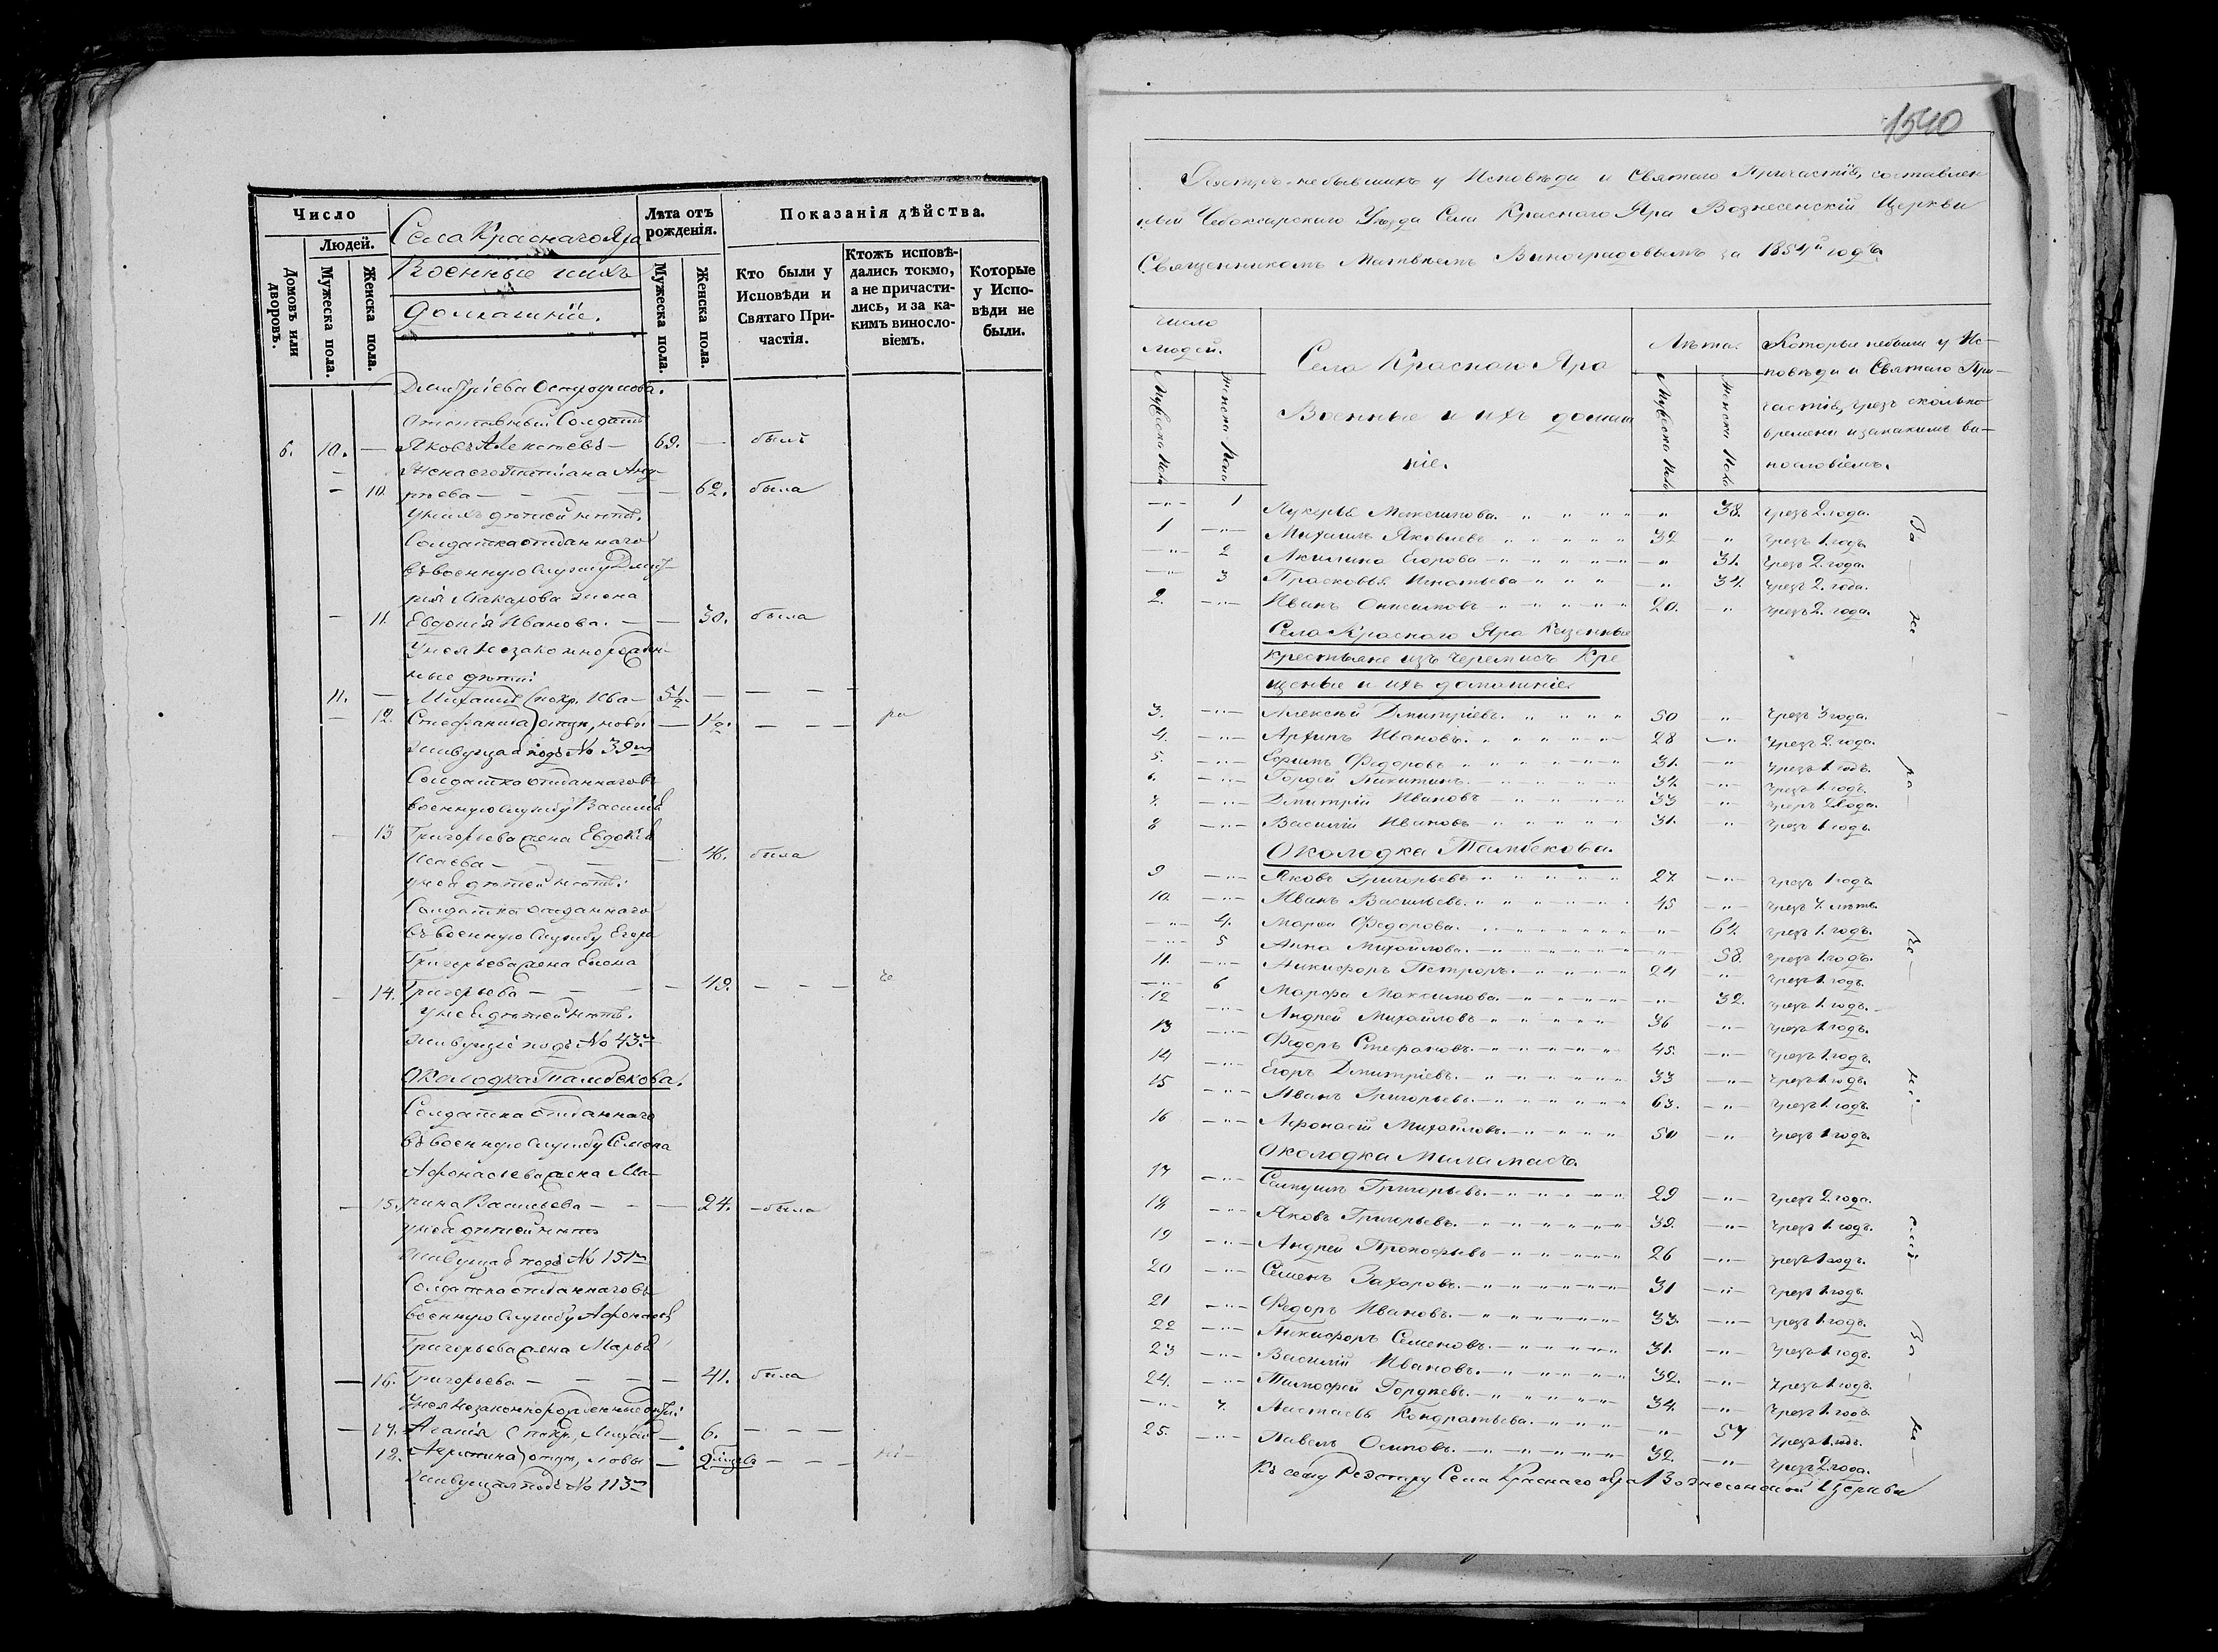 Число
Людей.
Домовъ или дворовъ.
Мужеска пола.
Женска пола.
Села Краснаго Яра
Военные и ихъ
домашніе.
Лѣта отъ рожденія.
Мужеска пола.
Женска пола.
Показанія дѣйства.
Кто были у Исповѣди и Святаго Причастія.
Ктожъ исповѣдались токмо, а не причастились, и за какимъ винословіемъ.
Которые у Исповѣди не были.
Дмитріева Остроумова.
Отставный Солдатъ
6. 10. — Яковъ Алексѣевъ — 69. — былъ
Жена его Татіана Анд-
— 10. рѣева — — — — 62. была
У нихъ дѣтей нѣтъ.
Солдатка отданнаго
въ военную службу Дмит-
рія Макарова жена
— 11. Евдокія Иванова. — — 30. была
У нея незаконнорожден-
ные дѣти:
11. — Михаилъ (по кр. Ива- 5½ — — — —
— 12. Стефанида) отцн, новы — 1½. — — — ра
живущая подъ № 39м
Солдатка отданнаго въ
военную службу Василія
— 13 Григорьева жена Евдокія
Исаева — — — — 46. была
у ней дѣтей нѣтъ.
Солдатка отданнаго
въ военную службу Егора
Григорьева жена Елена
— 14. Григорьева — — — — 49. — — —
у ней дѣтей нѣтъ.
живущіе подъ № 43.м
Околодка Тамбекова.
Солдатка отданнаго
въ военную службу Семена
Афонасіева жена Ма-
— 15. рина Васильева — — — 24. — была
у ней дѣтей нѣтъ
живущая подъ № 151м
Солдатка отданнаго въ
военную службу Афонасія
Григорьева жена Марья
— 16. Григорьева — — — — 41. была
У нея незаконнорожденные дѣти:
— 17. Агапія (по кр. Михаи — 6. — — —
18. отцн, ловы — 2 — — —
живущая подъ № 113м
1540
Реэстръ небывшихъ у Исповѣди и Святаго Причастія, составлен
ный Чебоксарскаго Уѣзда Села Краснаго Яра Вознесенской Церкви
Священникомъ Матвѣемъ Виноградовымъ за 1854й годъ.
Число людей.
Мужеска Пола
Женска Пола
Села Краснаго Яра
Военные и ихъ домаш
ніе.
Лѣта.
Мужеска Пола
Женска Пола
Которые небыли у Ис-
повѣди и Святаго При-
частія, чрезъ сколько
времени и за какимъ ви-
нословіемъ.
—"— 1 Лукерья Максимова. " 38. чрезъ 2. года.
1 —"— Михаилъ Яковлевъ 32 " чрезъ 1. годъ
—"— 2 Акилина Егорова — " 31. чрезъ 2. года.
—"— 3 Прасковья Игнатьева " 34. чрезъ 2. года.
2. —"— Иванъ Онисимовъ 20. " чрезъ 2. года.
Села Краснаго Яра Казенные
крестьяне изъ черемисъ Кре
щеные и ихъ домашніе.
3. —"— Алексѣй Дмитріевъ. 50 " чрезъ 3 года.
4. —"— Архипъ Ивановъ. 28 —"— чрезъ 2. года.
5. —"— Ефимъ Федоровъ 31. —"— чрезъ 1. годъ.
6. —"— Гордѣй Никитинъ. 34. —"— чрезъ 1. годъ.
7. —"— Дмитрій Ивановъ 33 —"— чрезъ 2 года.
8 —"— Василій Ивановъ 31. —"— чрезъ 1. годъ.
Околодка Тамбекова.
9 —"— Яковъ Григорьевъ 27. —"— чрезъ 1 годъ
10. —"— Иванъ Васильевъ. 45 —"— чрезъ 4. лѣтъ.
—"— 4. Марѳа Федорова. —"— 64 чрезъ 1. годъ.
—"— 5 Анна Михайлова. —"— 58. чрезъ 1. годъ.
11. —"— Никифоръ Петровъ. 24 —"— чрезъ 1. годъ.
—"— 6 Марѳа Максимова. —"— 32. чрезъ 1. годъ.
12 —"— Андрей Михайловъ 36 —"— чрезъ 1 годъ.
13 —"— Федоръ Стефановъ. 45. —"— чрезъ 1. годъ.
14 —"— Егоръ Дмитріевъ. 33 —"— чрезъ 1 годъ.
15 —"— Иванъ Григорьевъ. 63. —"— чрезъ 1. годъ.
16 —"— Афонасій Михайловъ. 50 —"— чрезъ 1 годъ.
Околодка Мыламасъ.
17 —"— Григорьевъ. 29 —"— чрезъ 2. года.
18 —"— Яковъ Григорьевъ. 39. —"— чрезъ 1. годъ.
19 —"— Андрей Прокофьевъ 26 —"— чрезъ 1 годъ.
20 —"— Семенъ Захаровъ. 31 —"— чрезъ 1. годъ.
21 —"— Федоръ Ивановъ. 33. —"— чрезъ 1. годъ.
22 —"— Никифоръ Семеновъ. 31. —"— чрезъ 1. годъ.
23 —"— Василій Ивановъ. 32. —"— чрезъ 1. годъ.
24. —"— Тимофей Гордѣевъ. 34. —"— чрезъ 1. годъ.
—"— 7. Настасья Кондратьева. " 57 чрезъ 1. годъ.
25. —"— Павелъ Осиповъ. 32. —"— чрезъ 2 года.
Къ сему Реэстру Села Краснаго Яра Вознесенской Церкви